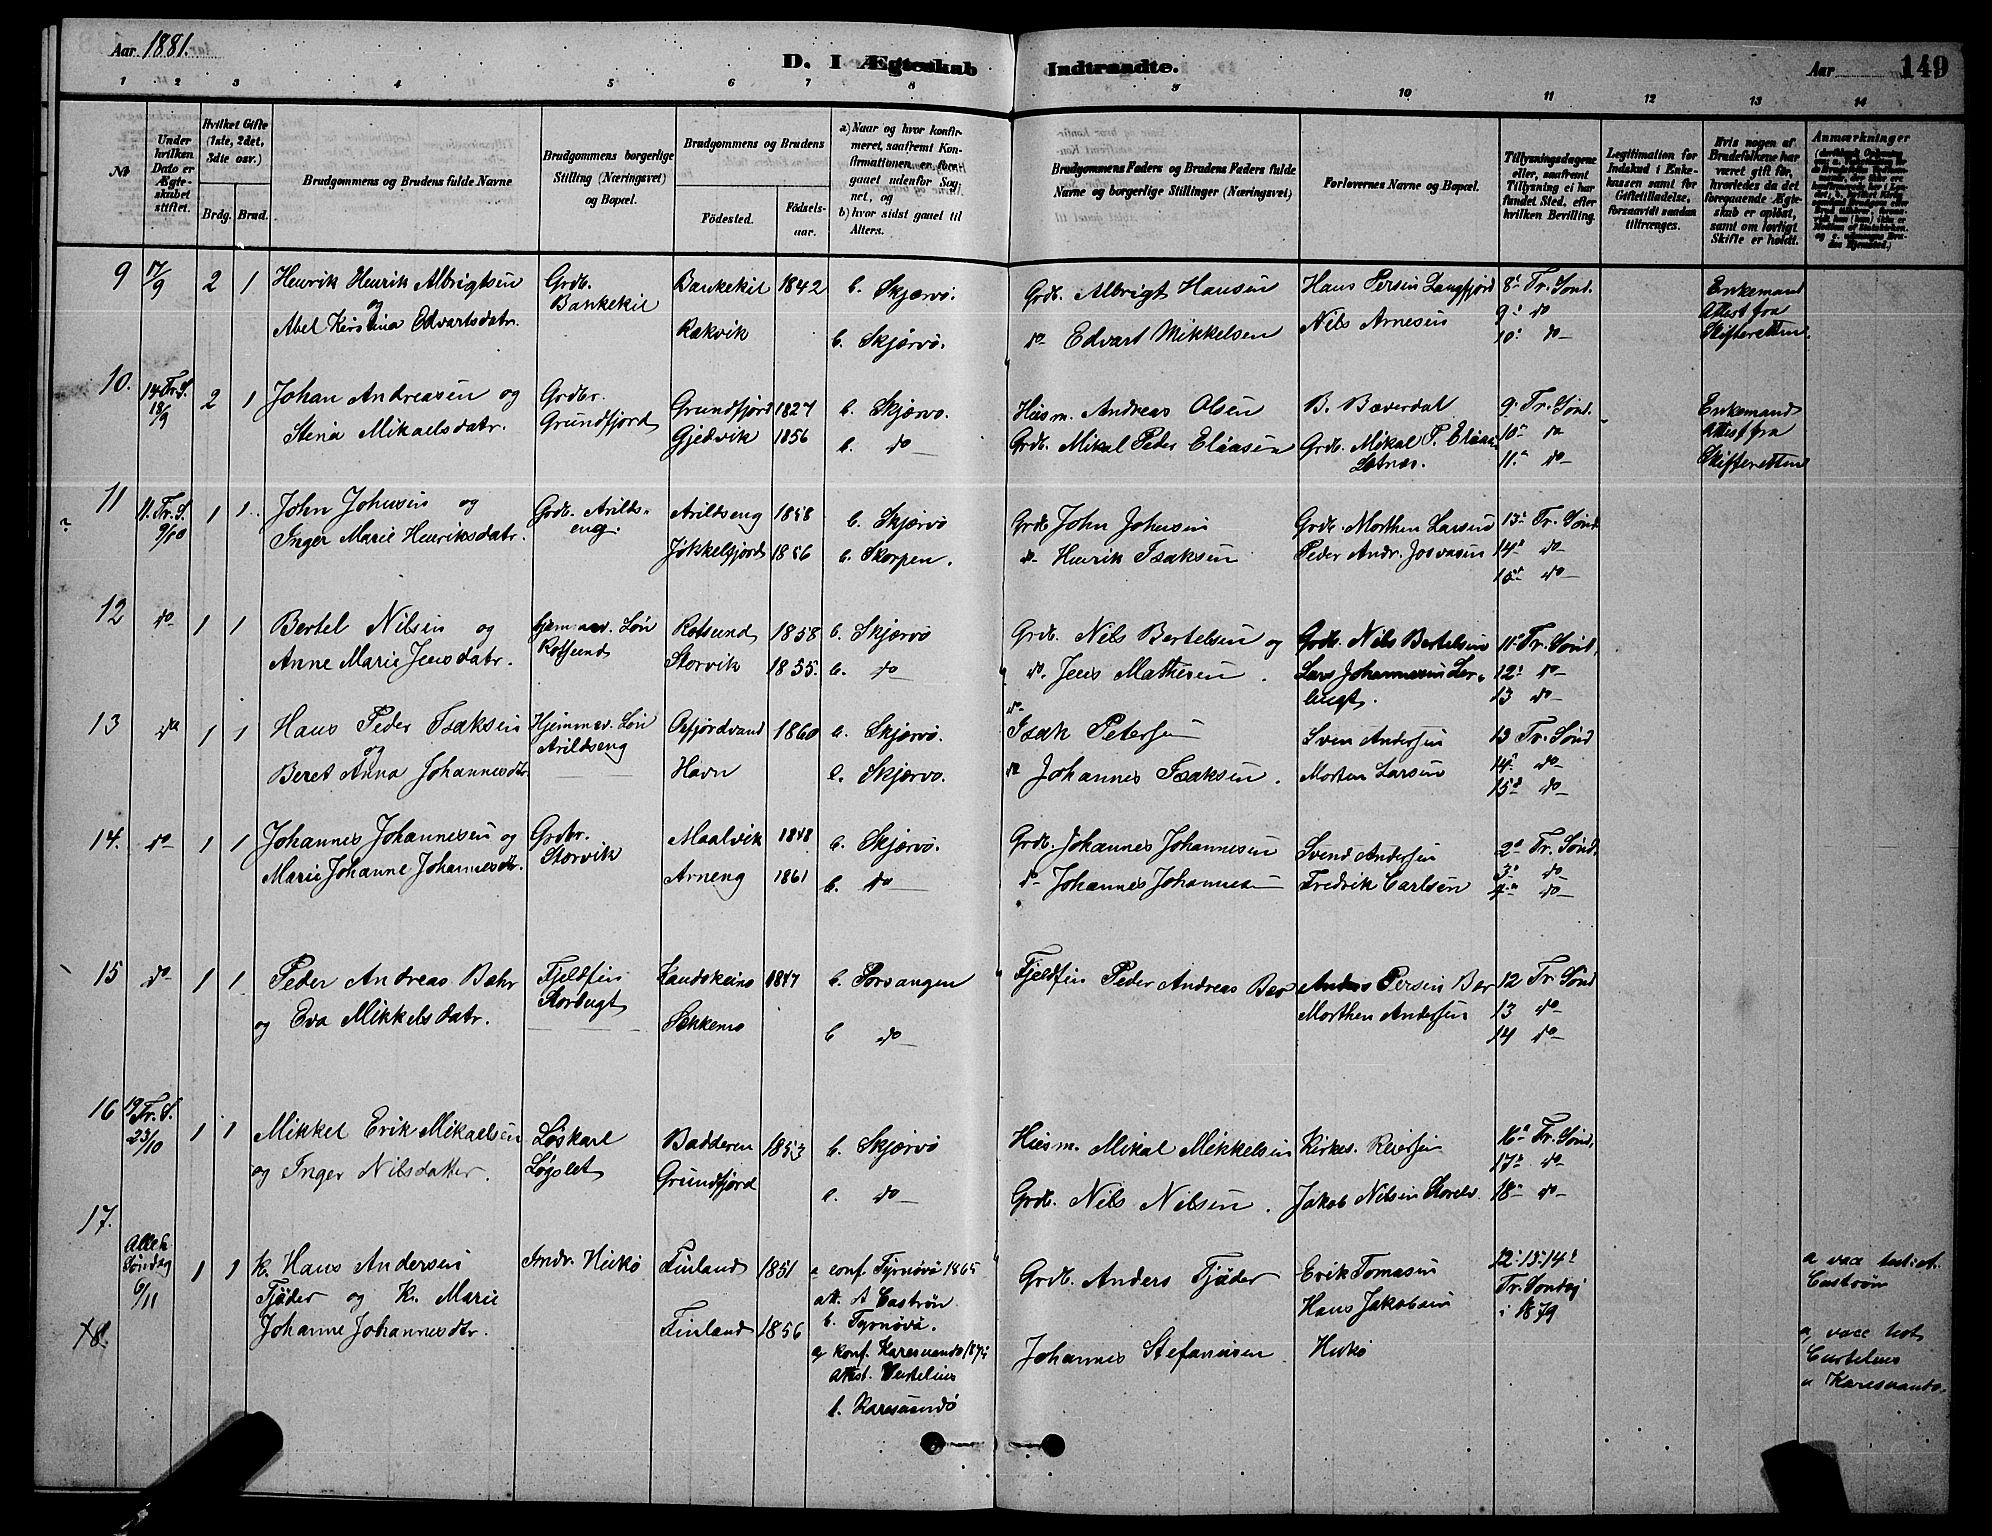 Aar 1881.
D. I Ægteskab Indtraadte.
Aar 149
1 2 3 4 5 6 7 8 9 10 11 12 13 14
No
Under hvilken Dato er Ægteskabet stiftet.
Hvilket Gifte (1ste, 2det, 3die osv.)
Brdg. Brud.
Brudgommens og Brudens fulde Navne
Brudgommens borgerlige Stilling (Næringsvei) og Bopæl.
Brudgommens og Brudens
Fødested. Fødsels-aar.
a) Naar og hvor konfirmeret, saafremt Konfirmationen er foregaaet udenfor Sognet, og
b) hvor sidst gaaet til Alters.
Brudgommens Faders og Brudens Faders fulde Navne og borgerlige Stillinger (Næringsvei)
Forlovernes Navne og Bopæl.
Tillysningsdagene eller, saafremt Tillysning ei har fundet Sted, efter hvilken Bevilling.
Legitimation for Indskud i Enkekassen samt for Giftetilladelse, forsaavidt saadan tiltrænges.
Hvis nogen af Brudefolkene har været gift før, hvorledes da det foregaaende Ægteskab er opløst, samt om lovligt Skifte er holdt.
Anmærkninger
9 17/9 2 1 Henrik Henrik Albrigtsen Grdb. Bankekil 1842 b. Skjærvø. Grdb. Albrigt Hansen Hans Persen Langfjord 8de Tr. Sønd. Enkemand
og Bankekil 9de do Attest fra
Abel Kirstina Edvartsdatr. Rakvik b. Skjærvø. do Edvart Mikkelsen Nils Arnesen 10de do Skifteretten.
10. 14 Tr. S. 18/9 2 1 Johan Andreasen og Grdbr. Grundfjord 1827 b. Skjærvø. Husm. Andreas Olsen B. Bæverdal 9de Tr. Sønd. Enkemand
Stena Mikaelsdatr. Grundfjord Gjedvik 1856 b. do Grdb. Mikal Peder Eliasen Grdb. Mikal P. Elias 10de do Attest fra
11te do Skifteretten
11 11. Tr. S. 9/10 1 1 John Johnsen og Grdb. Arilds- Arildseng 1858 b. Skjærvø Grdb John Johnsen Grdb. Morthen Larsen 13de Tr. Sønd
Inger Marie Henriksdatr. eng. Jøkkelfjord 1856 b. Skorpen. do Henrik Isaksen Peder Andr. Josvasen 14de do
15de do
12 do 1 1 Bertel Nilsen og Hjemmev. Søn Rotsund 1858 b. Skjærvø Grdb. Nils Bertelsen og Grdb. Nils Bertelsen 11te Tr. Sønd.
Anne Marie Jensdatr. Rotsund Storvik 1855. b. do do. Jens Mathesen. Lars Johannesen Ler- 12te do
bugt. 13 do
13 do 1 1 Hans Peder Isaksen Hjemmev. Søn Oxfjordvand 1860 b. Skjærvø. do Isak Petersen Sven Andersen 13 Tr. Sønd
og Arildseng 14de do
Beret Anna Johannesdtr. Havn b. Skjærvø. do Johannes Isaksen. Morten Larsen 15de do
14. do 1 1 Johannes Johannesen og Grdbr. Maalvik 1848 b. Skjærvø. Grdb. Johannes Johannesen Svend Andersen 2de Tr. Sønd.
Marie Johanne Johannesdtr. Storvik Arneng 1861 b. do do Johannes Johannesen Fredrik Carlsen 3de do
4de do
15 do 1 1 Peder Andreas Bahr Fjeldfin Kaudokeino 1847 b. Sørvangen Fjeldfin Peder Andreas Bær Anders Persen Bær 12 Tr. Sønd
og Eva Mikkelsdatr. Storbugt Sekkemo b do Morthen Andersen 13 do
14 do
16 19 Tr. S. 23/10 1 1 Mikkel Erik Mikaelsen Løskarl Badderen 1853 b. Skjærvø Husm. Mikal Mikkelsen Kirkes. Reiersen 16de Tr. Sønd.
og Inger Nilsdatter. Løgslet Grundfjord b. do Grdb. Nils Nilsen. Jakob Nilsen Storelv. 17de do
18de do
17. Alleh. Søndag 6/11 1 1 k. Hans Andersen Indr. Hukø Finland 1851 a conf. Tyrnøvø 1865 Grdb. Anders Tjäder Erik Tomasen 12. 13. 14de a vac. test: at.
Tjäder og K. Marie att. A Castrøn. Hans Jakobsen Tr. Søndag Castrøn
18. Johanne Johannesdtr. Finland 1856 b. Tyrnøvø. Johannes Stefanusen. Hukø i 1879 a, vac test
a, konf. Karesuando
b. Karesuando